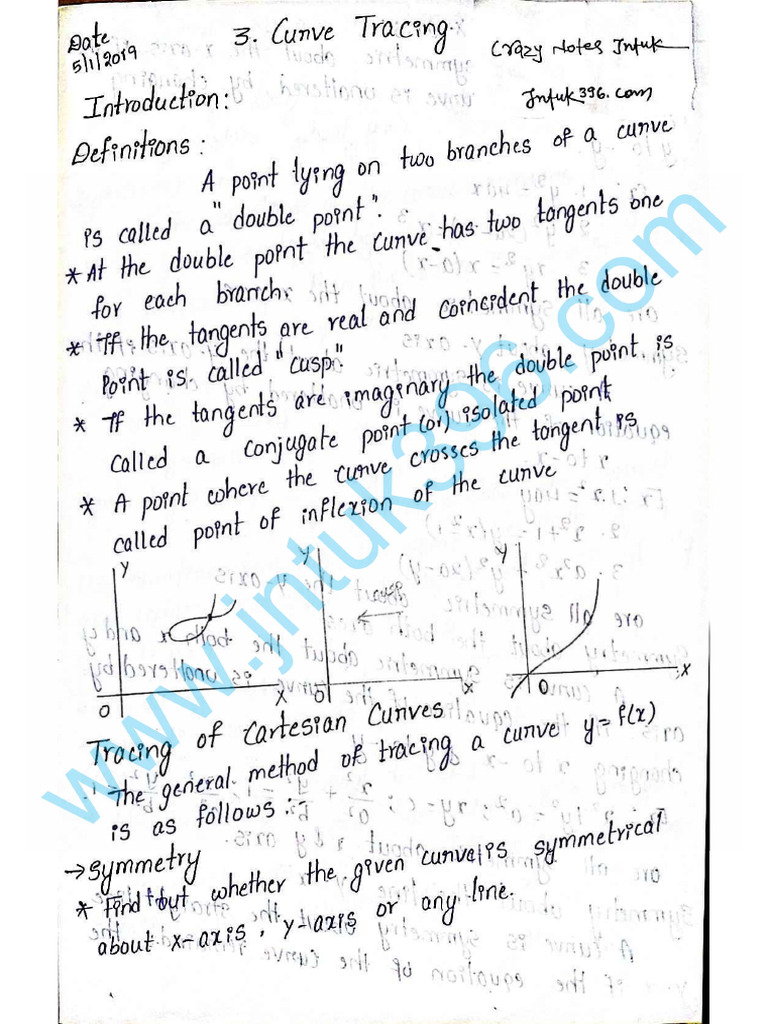 Date
5/1/2019
3. Curve Tracing.
Crazy Notes Jntuk
Jntuk396.com
Introduction:
Definitions:
A point lying on two branches of a curve
is called a "double point".
* At the double point the curve has two tangents one
for each branch.
* If the tangents are real and coincident the double
point is called "cusp".
* If the tangents are imaginary the double point is
called a conjugate point (or) isolated point
* A point where the curve crosses the tangent is
called point of inflexion of the curve
Y Y Y
O X O X O X
Tracing of Cartesian Curves
The general method of tracing a curve y=f(x)
is as follows:
→ Symmetry
* Find out whether the given curve is symmetrical
about x-axis, y-axis or any line.
www.jntuk396.com